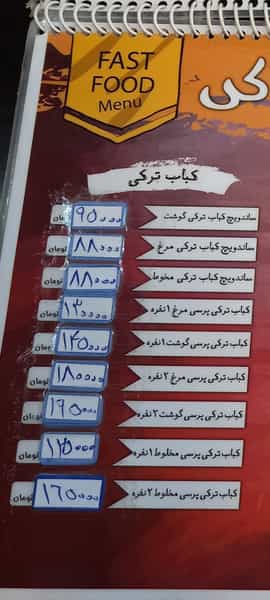 FAST
FOOD
Menu
کی
کباب ترکی
ساندویچ کباب ترکی گوشت ۹۵۰۰۰ تومان
ساندویچ کباب ترکی مرغ ۸۸۰۰۰ تومان
ساندویچ کباب ترکی مخلوط ۸۸۰۰۰ تومان
کباب ترکی پرسی مرغ ۱ نفره ۱۳۰۰۰۰ تومان
کباب ترکی پرسی گوشت ۱ نفره ۱۴۵۰۰۰ تومان
کباب ترکی پرسی مرغ ۲ نفره ۱۸۰۰۰۰ تومان
کباب ترکی پرسی گوشت ۲ نفره تومان
کباب ترکی پرسی مخلوط ۱ نفره ۱۳۵۰۰۰ تومان
کباب ترکی پرسی مخلوط ۲ نفره تومان